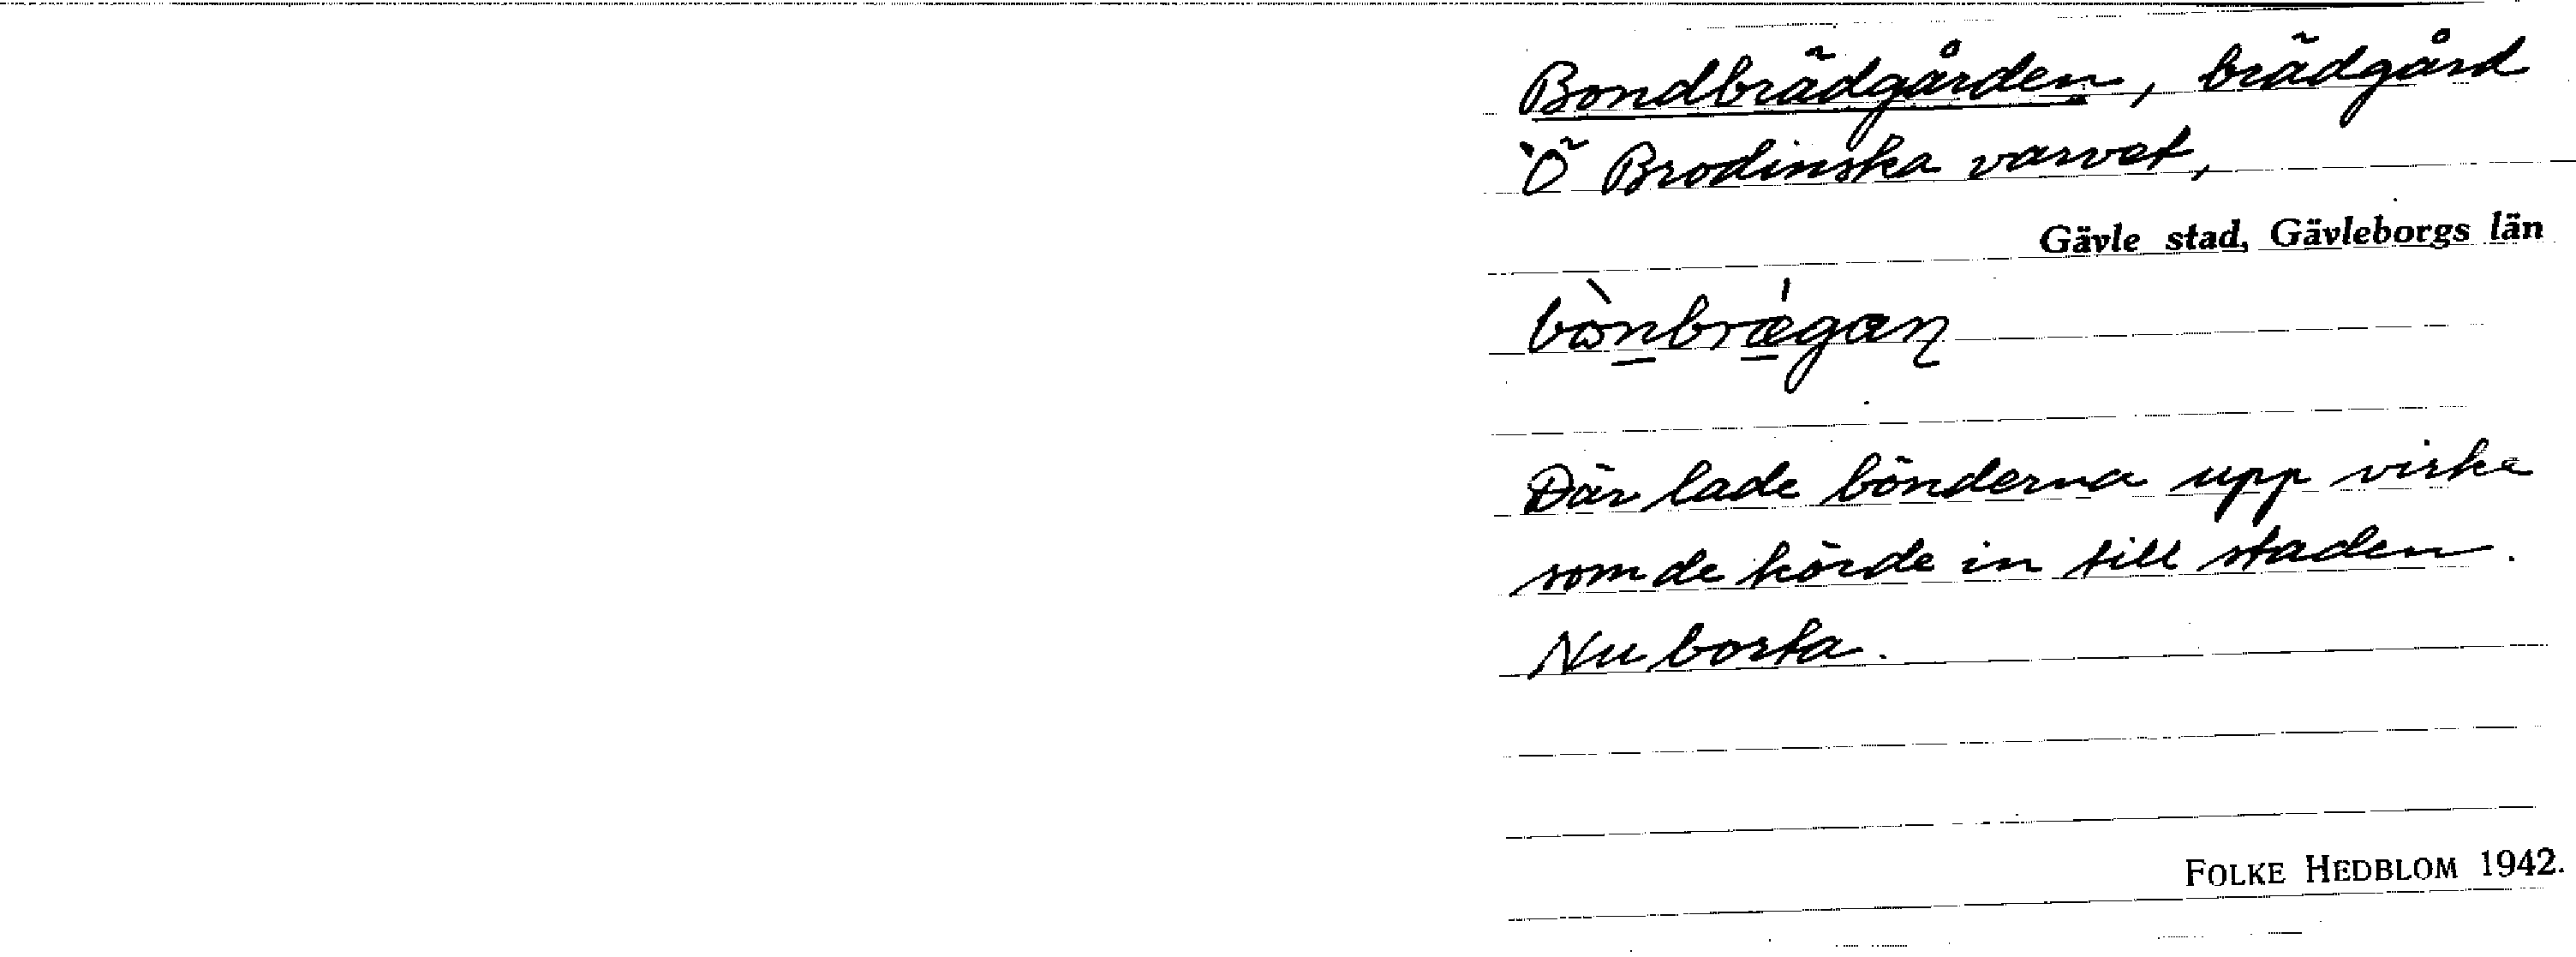 Bondbrädgården, brädgård
Ö Brodinska varvet,
Gävle stad, Gävleborgs län
bònbrægan
Där lade bönderna upp virke
som de körde in till staden.
Nu borta.
FOLKE HEDBLOM 1942.